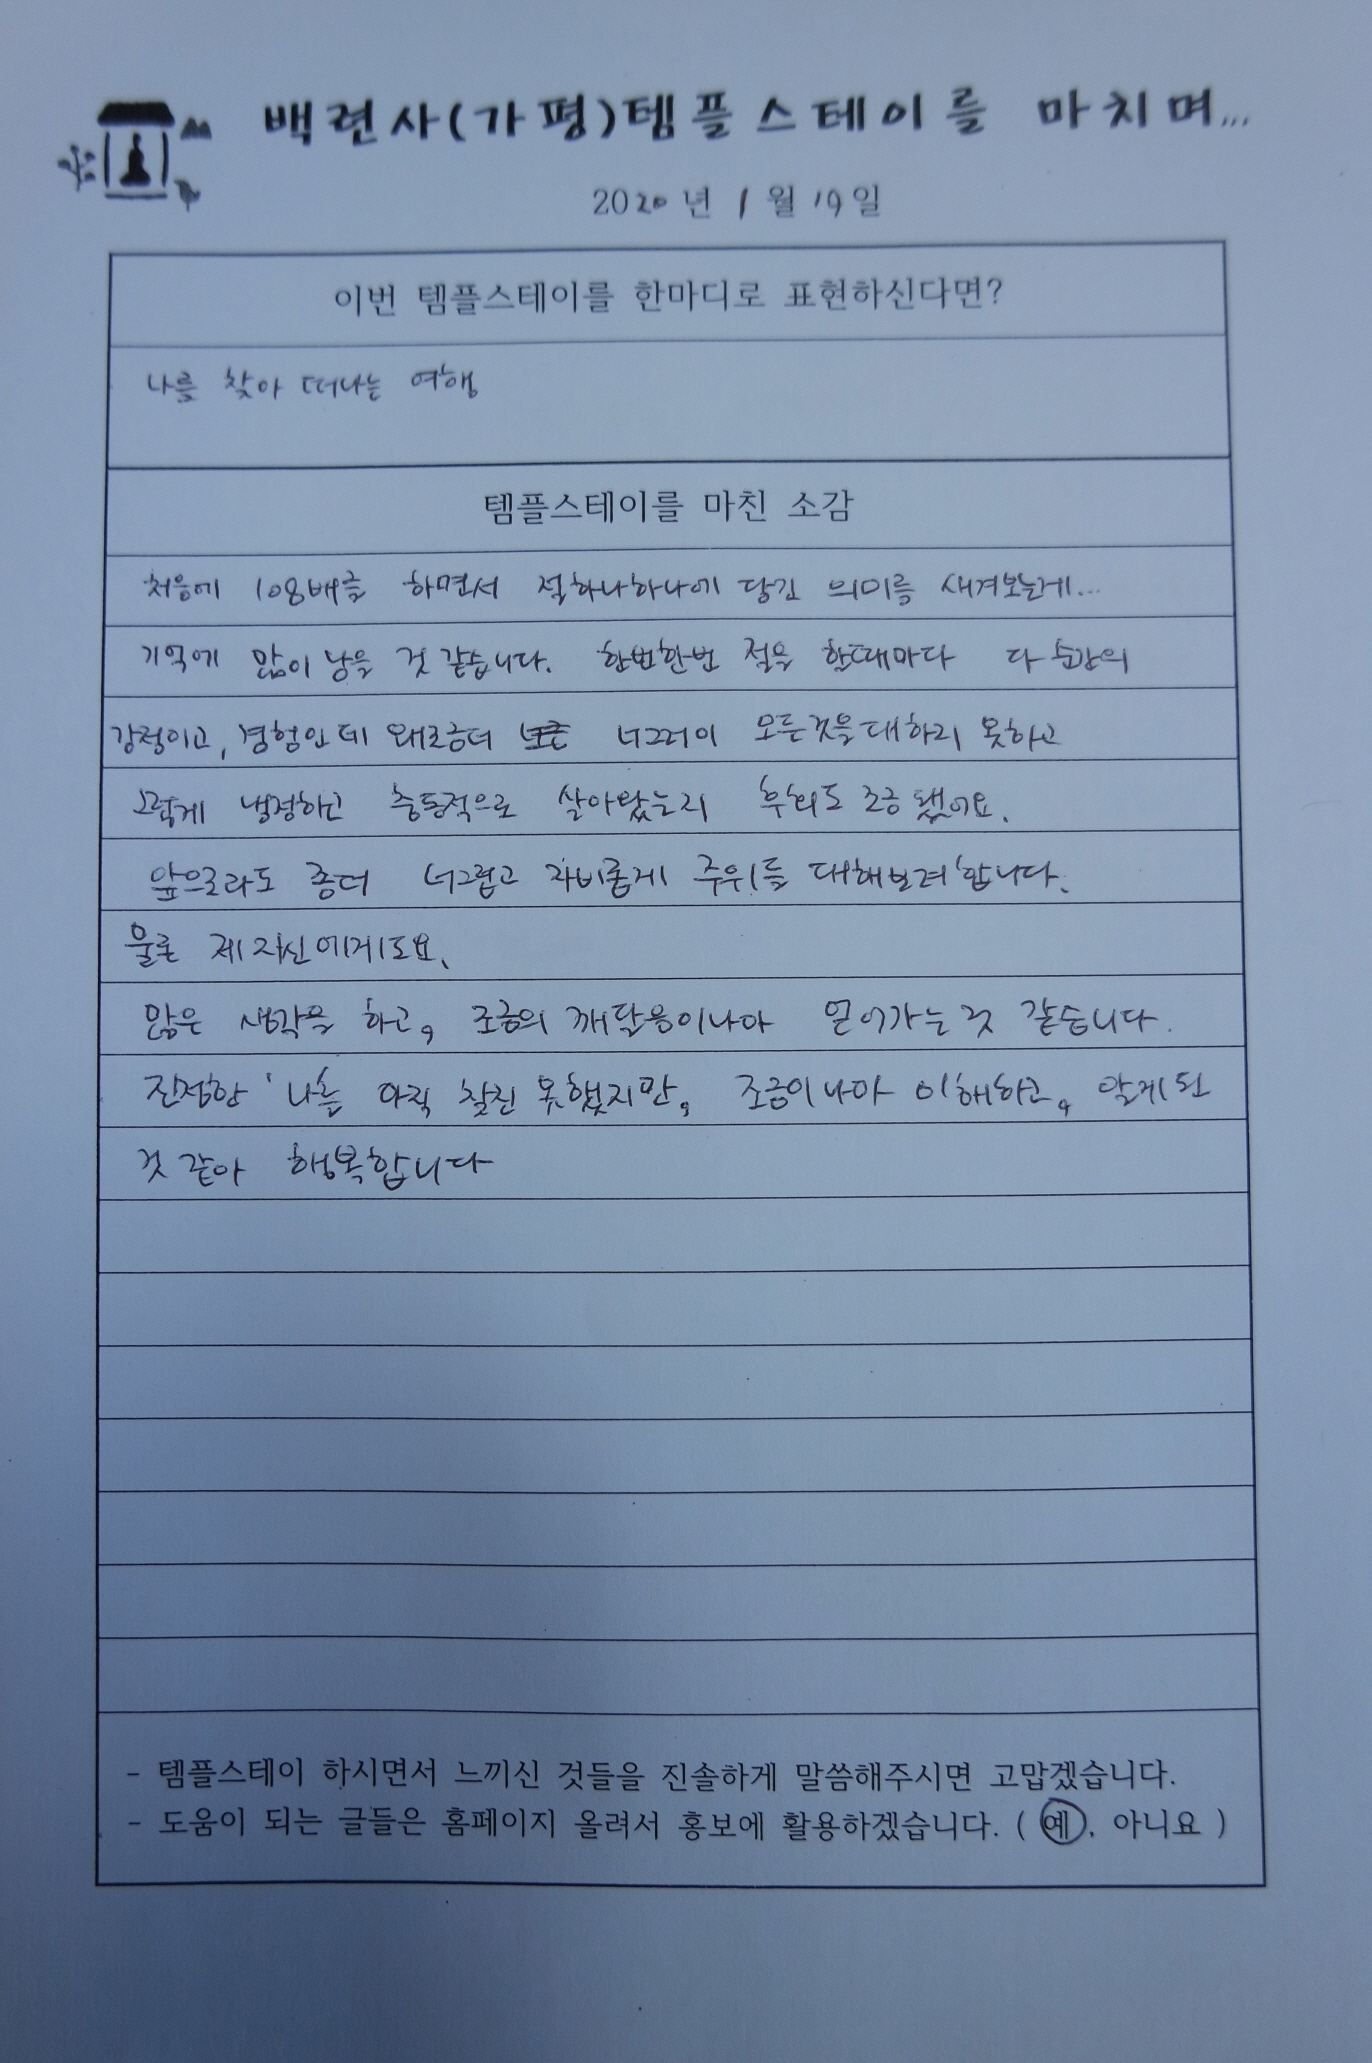 백련사(가평)템플스테이를 마치며...
2020년 1월 19일
이번 템플스테이를 한마디로 표현하신다면?
나를 찾아 떠나는 여행
템플스테이를 마친 소감
처음에 108배를 하면서 절하나하나에 담긴 의미를 새겨보는게...
기억에 많이 남을 것 같습니다. 한번한번 절을 할때마다 다 순간의
감정이고, 경험인데 왜조금더 너그러이 모든것을대하지 못하고
그렇게 냉정하고 충동적으로 살아왔는지 후회도 조금 됐어요.
앞으로라도 좀더 너그럽고 자비롭게 주위를 대해보려합니다.
물론 제 자신에게도요.
많은 생각을 하고, 조금의 깨달음이나마 얻어가는 것 같습니다.
진정한 '나'를 아직 찾진 못했지만, 조금이나마 이해하고, 알게된
것 같아 행복합니다
- 템플스테이 하시면서 느끼신 것들을 진솔하게 말씀해주시면 고맙겠습니다.
- 도움이 되는 글들은 홈페이지 올려서 홍보에 활용하겠습니다. ( 예, 아니요 )